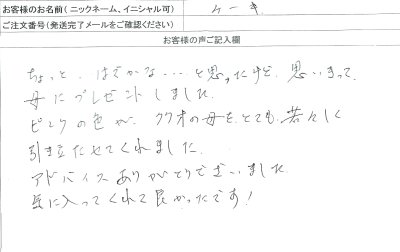 お客様のお名前（ニックネーム、イニシャル可） ケーキ
ご注文番号（発送完了メールをご確認ください）
お客様の声ご記入欄
ちょっと、はでかな…と思ったけど、思いきって
母にプレゼントしました。
ピンクの色が、72才の母をとても若々しく
引き立たせてくれました。
アドバイスありがとうございました
気に入ってくれて良かったです！